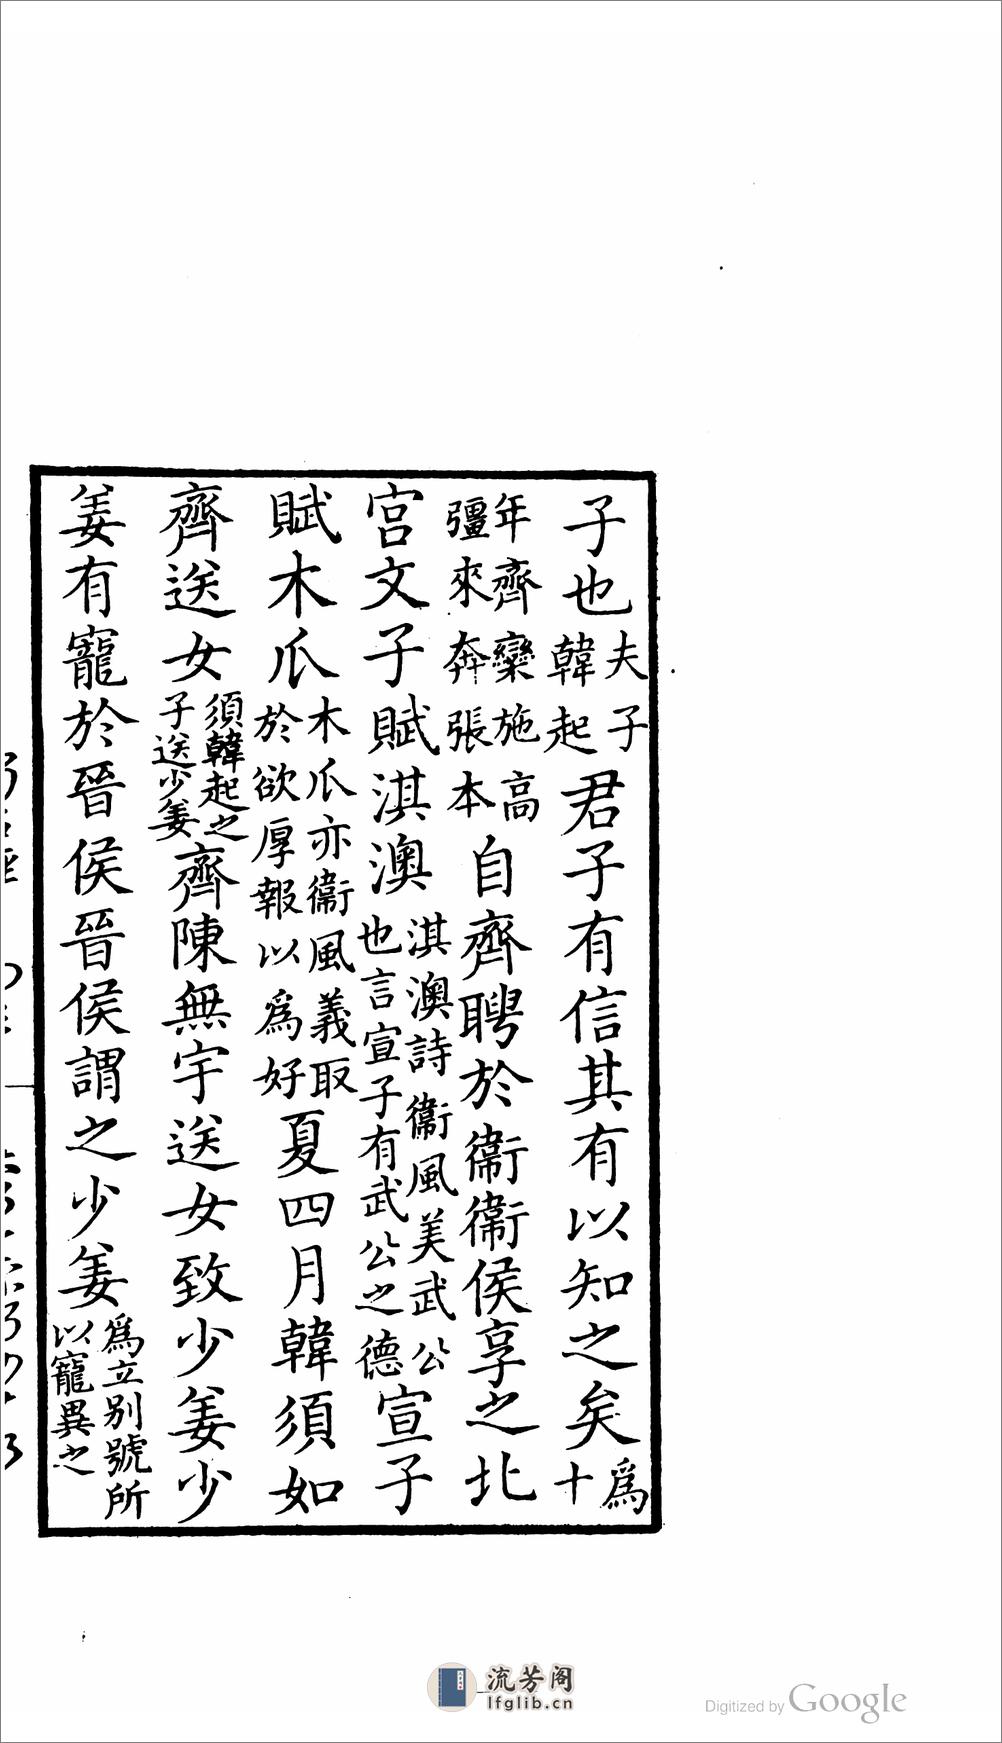 子也夫子韓起君子有信其有以知之矣爲十
年齊欒施高彊來奔張本自齊聘於衞衞侯享之北
宮文子賦淇澳淇澳詩衞風美武公也言宣子有武公之德宣子
賦木瓜木瓜亦衞風義取於欲厚報以爲好夏四月韓須如
齊送女須韓起之子送少姜齊陳無宇送女致少姜少
姜有寵於晉侯晉侯謂之少姜爲立別號所以寵異之
流芳阁
lfglib.cn
Digitized by Google